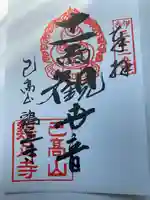 奉拝
十一面観世音
己高山 鶏足寺
己高山